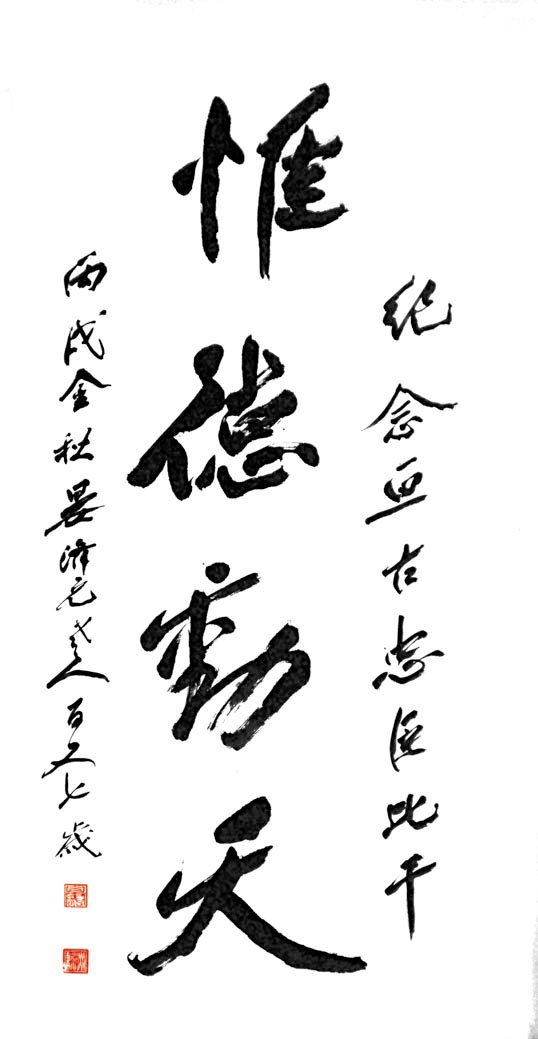 纪念亘古忠臣比干
惟德動天
丙戌金秋晏濟元老人百又七歲